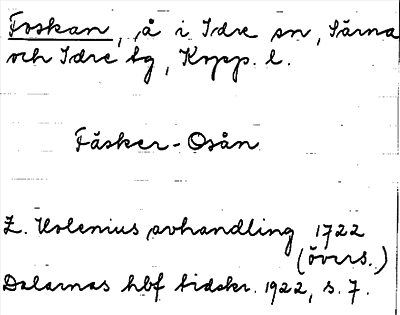 Foskan, å i Idre sn, Särna
och Idre tg, Kopp. l.
Fåsker-Osån
Z. Holenius avhandling 1722
(övers.)
Dalarnas hbf tidskr. 1922, s. 7.